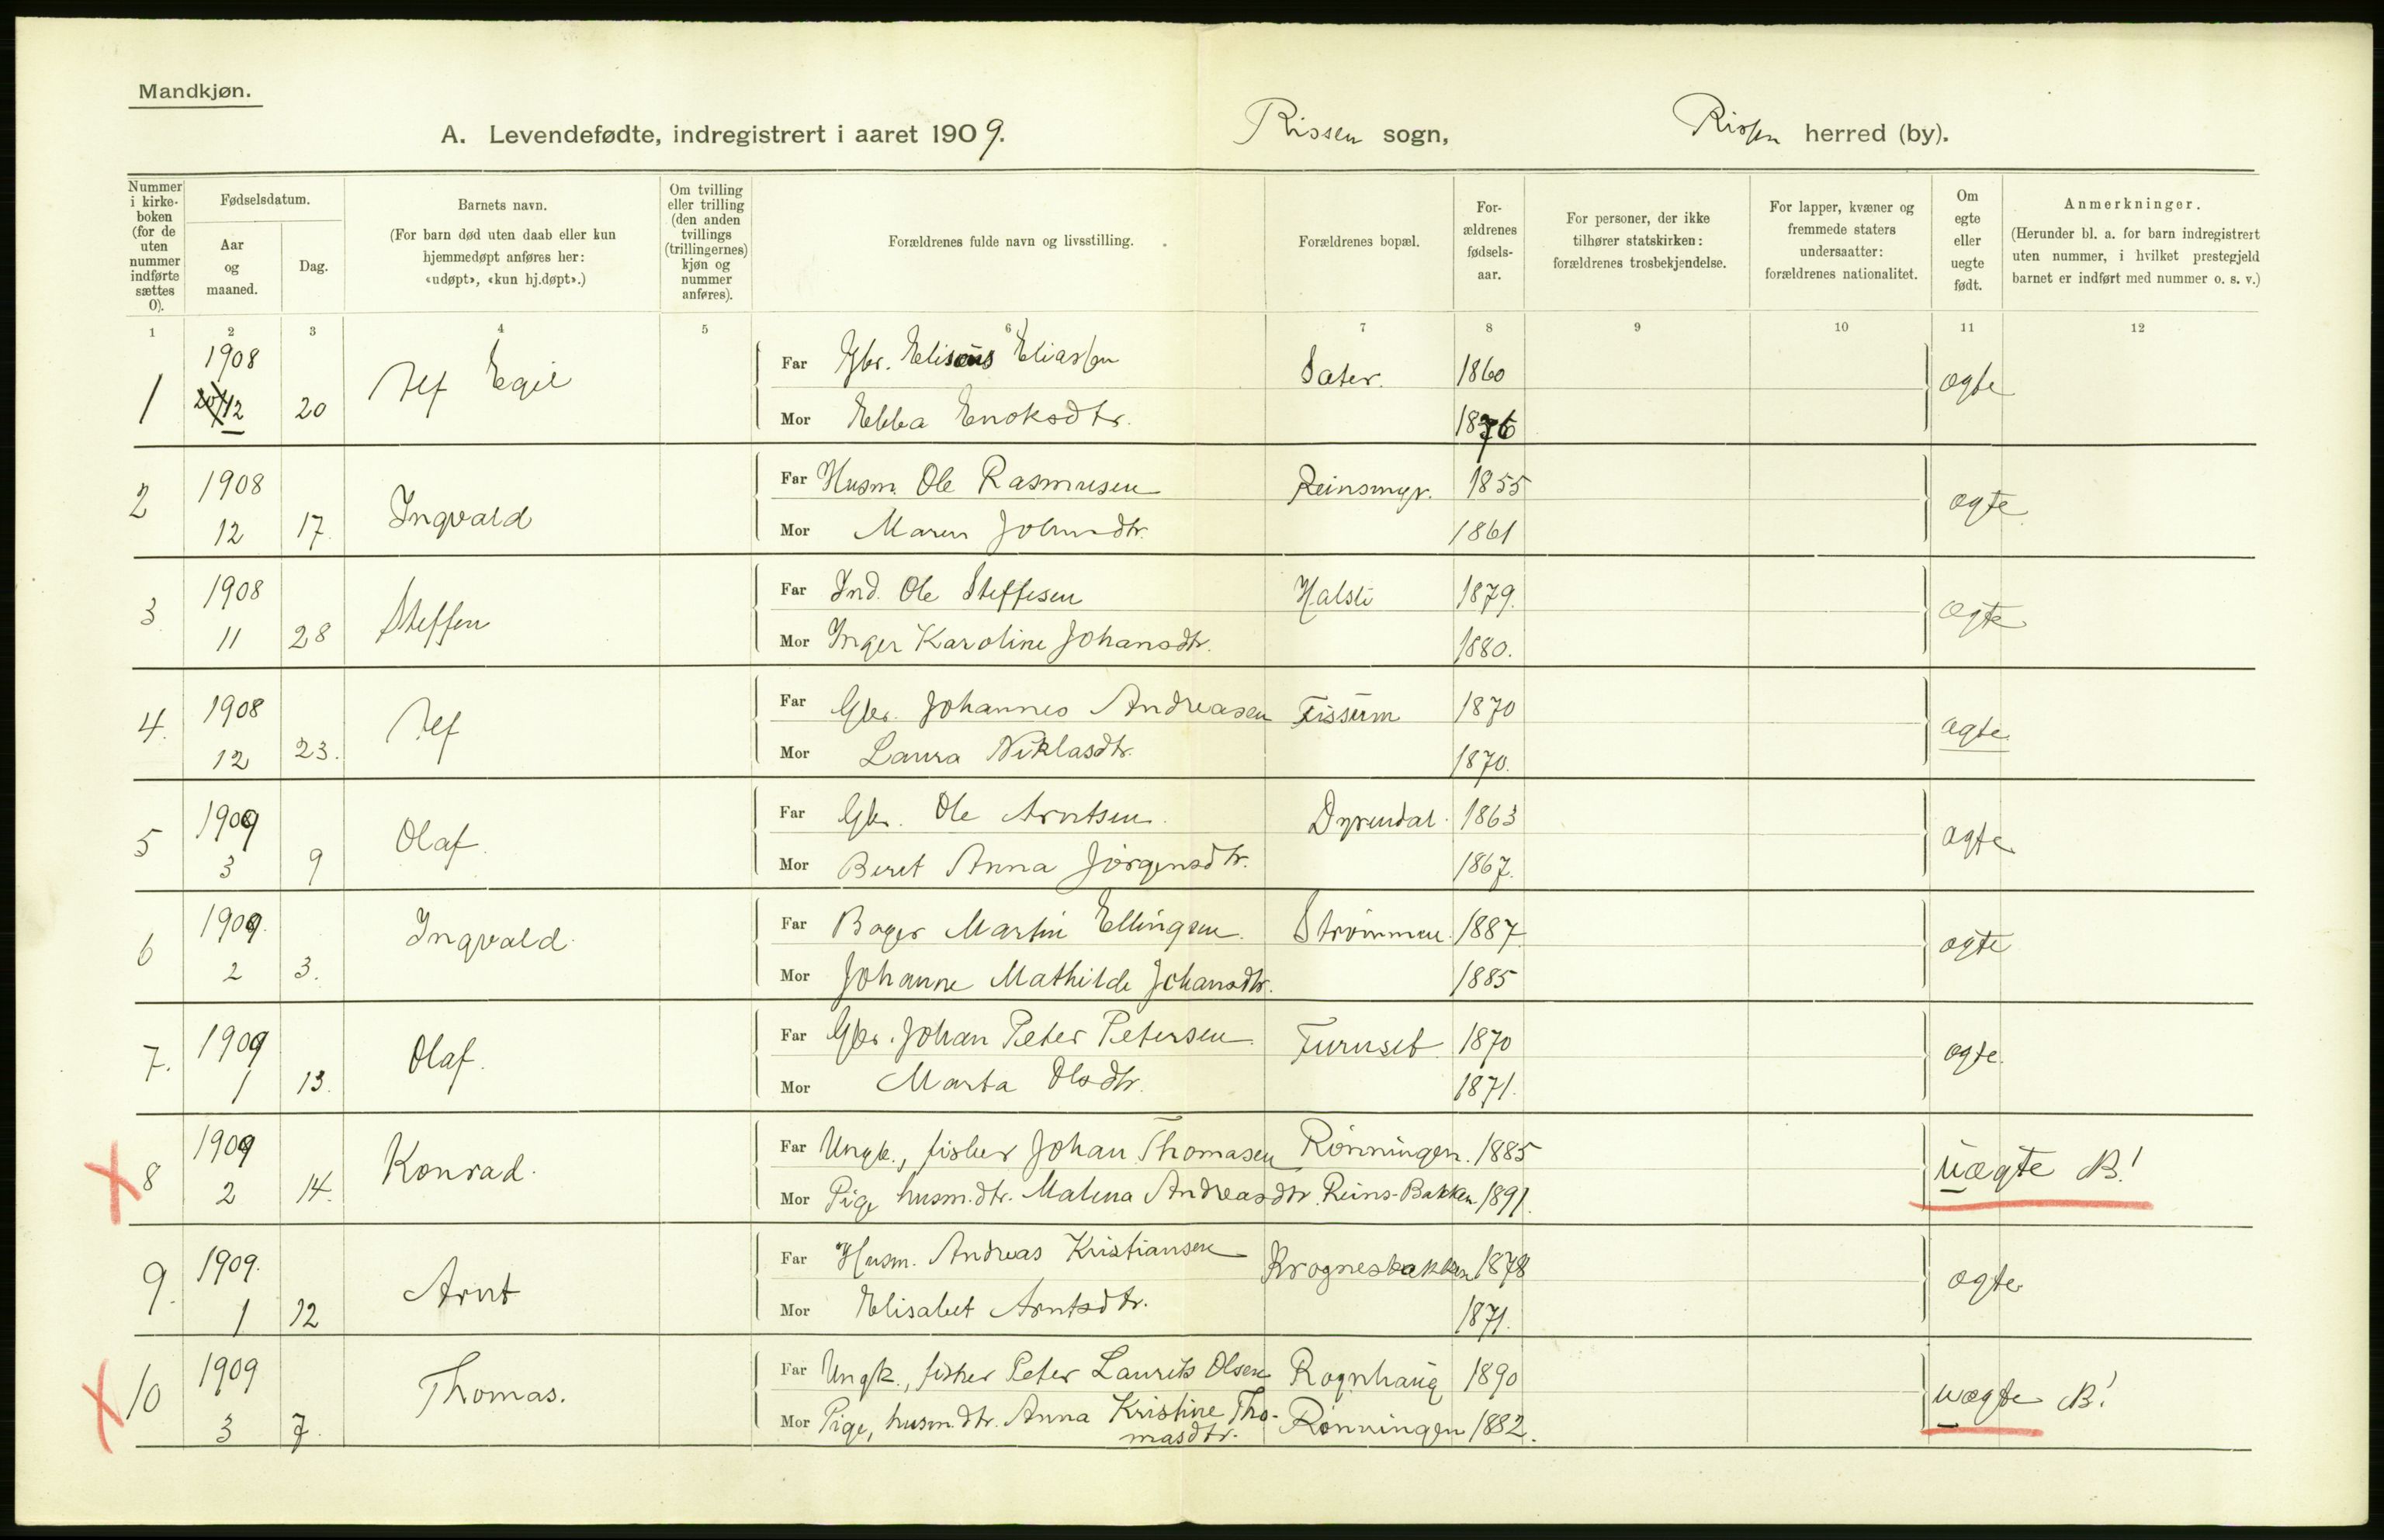 Mandkjøn.
A. Levendefødte, indregistrert i aaret 1909. Rissen sogn, Rissen herred (by).
Nummer i kirke-boken (for de uten nummer indførte sættes 0).
Fødselsdatum.
Aar og maaned.
Dag.
Barnets navn.
(For barn død uten daab eller kun hjemmedøpt anføres her: «udøpt», «kun hj.døpt».)
Om tvilling eller trilling (den anden tvillings (trillingernes) kjøn og nummer anføres).
Forældrenes fulde navn og livsstilling.
Forældrenes bopæl.
For-ældrenes fødsels-aar.
For personer, der ikke tilhører statskirken: forældrenes trosbekjendelse.
For lapper, kvæner og fremmede staters undersaatter: forældrenes nationalitet.
Om egte eller uegte født.
Anmerkninger.
(Herunder bl. a. for barn indregistrert uten nummer, i hvilket prestegjeld barnet er indført med nummer o. s. v.)
1 2 3 4 5 6 7 8 9 10 11 12
1 1908 12 20 Alf Egil Far Gbr. Eliseus Eliassen Sæter. 1860 ægte
Mor Ebba Enoksdtr. 1876
2 1908 12 17. Ingvald Far Husm. Ole Rasmusen Reinsmyr. 1855 ægte
Mor Maren Johnsdtr. 1861
3 1908 11 28 Steffen Far Ind. Ole Steffesen Halsli 1879. ægte
Mor Inger Karoline Johansdtr. 1880.
4. 1908 12 23. Alf Far Gbr. Johannes Andreasen Fissum 1870 ægte
Mor Laura Niklasdtr. 1870.
5 1909 3 9 Olaf. Far Gbr. Ole Arntsen. Dyrendal. 1863 ægte
Mor Beret Anna Jörgensdtr. 1867.
6 1909. 2 3. Ingvald. Far Bager Martin Ellingsen. Strömmen. 1887 ægte
Mor Johanne Mathilde Johansdtr. 1885
7. 1909 1 13. Olaf. Far Gbr. Johan Peter Petersen. Furuset. 1870 ægte.
Mor Marta Olsdtr. 1871.
8 1909 2 14. Konrad. Far Ungk., fisker Johan Thomasen Rönningen. 1885 uægte B!
Mor Pige husm.dtr. Malena Andreasdtr Reins-Bakken 1891.
9. 1909. 1 12 Arnt Far Husm. Andreas Kristiansen Krognesbakken 1878 ægte
Mor Elisabet Arntsdtr. 1871.
10 1909 3 7. Thomas. Far Ungk., fisker Peter Laurits Olsen Rognhaug 1890 uægte B!
Mor Pige, husm.dtr. Anna Kristine Tho- Rönningen 1882.
masdtr.